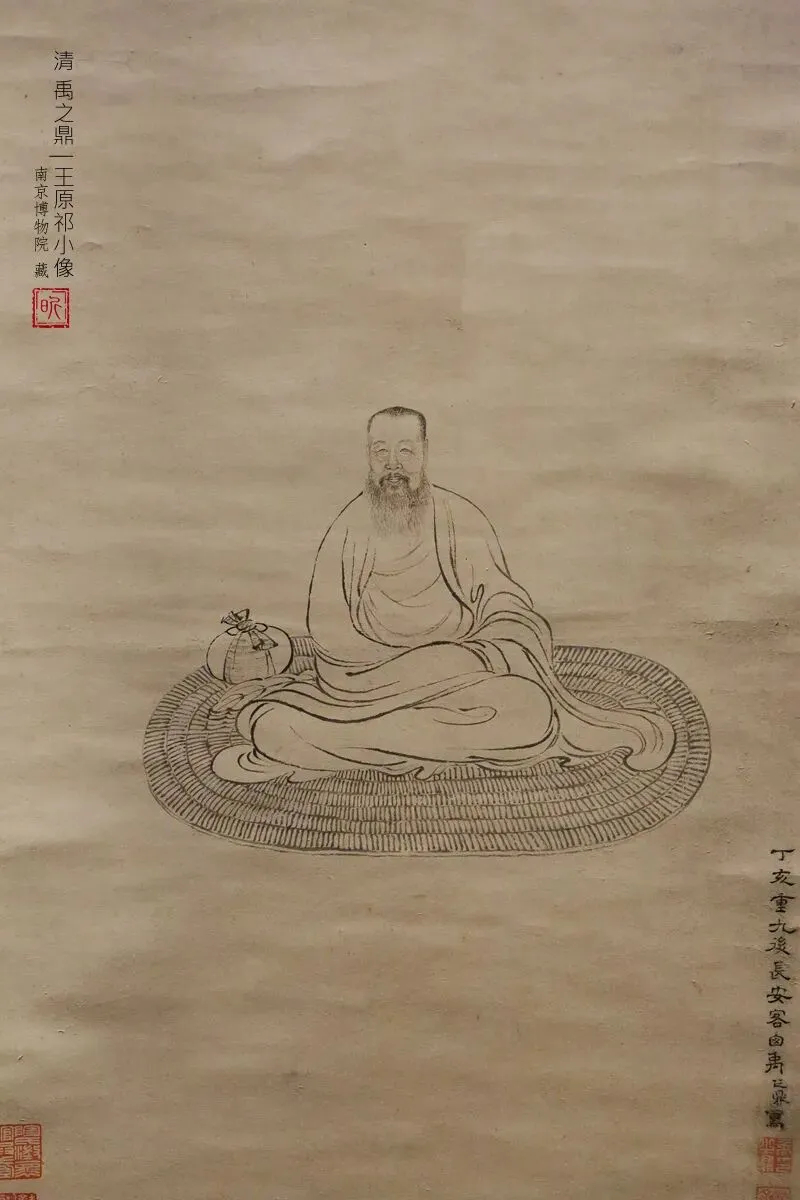 清 禹之鼎—王原祁小像
南京博物院 藏
昕
丁亥重九後長安客囪禹之鼎寫